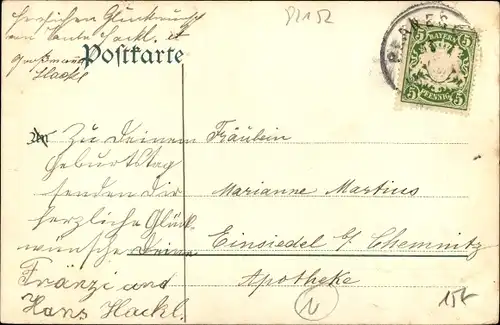 herzlichen Glückwunsch
von Tante Hackl. u
Großmama
Hackl
82152
Postkarte
BAYERN
5 5
PFENNIG
Zu Deinem
Geburtstag
senden Dir
herzliche Glück-
wünsche Deine
Fränzi und
Hans Hackl.
Fräulein
Marianne Martius
Einsiedel b/ Chemnitz
Apotheke
N